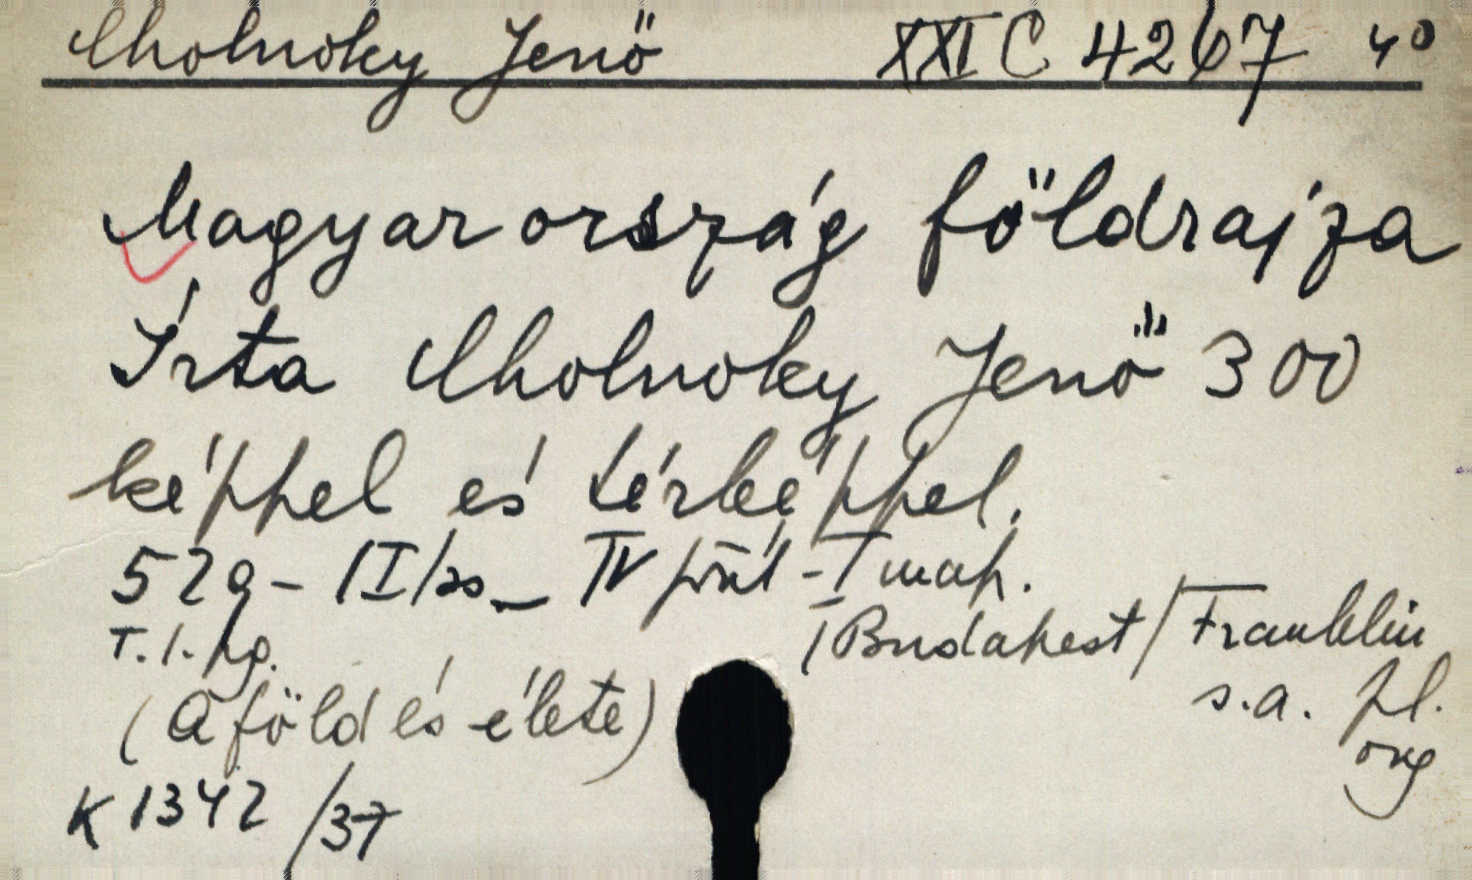 Cholnoky Jenő XXI C 4267 4°
Magyarország földrajza
Írta Cholnoky Jenő 300
képpel és térképpel.
529 - II map.
T. l. hg. /Budapest/ Franklin
(A föld és élete) s.a. pl.
K 1342 /37